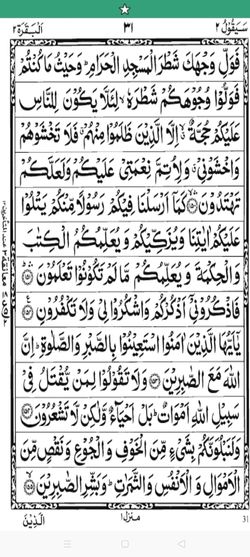 سَيَقُوۡلُ ٢
٣١
اَلۡبَقَرَة ٢
فَوَلِّ وَجۡهَكَ شَطۡرَ الۡمَسۡجِدِ الۡحَرَامِ ؕ وَحَيۡثُ مَا كُنۡتُمۡ
فَوَلُّوۡا وُجُوۡهَكُمۡ شَطۡرَهٗ ۙ لِئَلَّا يَكُوۡنَ لِلنَّاسِ
عَلَيۡكُمۡ حُجَّةٌ ۙ اِلَّا الَّذِيۡنَ ظَلَمُوۡا مِنۡهُمۡ ۗ فَلَا تَخۡشَوۡهُمۡ
وَاخۡشَوۡنِىۡ ۗ وَلِاُتِمَّ نِعۡمَتِىۡ عَلَيۡكُمۡ وَلَعَلَّكُمۡ
تَهۡتَدُوۡنَ ۙ﴿۱۵۰﴾ كَمَآ اَرۡسَلۡنَا فِيۡکُمۡ رَسُوۡلًا مِّنۡکُمۡ يَتۡلُوۡا
عَلَيۡكُمۡ اٰيٰتِنَا وَيُزَكِّيۡکُمۡ وَيُعَلِّمُکُمُ الۡكِتٰبَ
وَالۡحِکۡمَةَ وَيُعَلِّمُكُمۡ مَّا لَمۡ تَكُوۡنُوۡا تَعۡلَمُوۡنَ ؕ﴿۱۵۱﴾
فَاذۡكُرُوۡنِىۡٓ اَذۡكُرۡكُمۡ وَاشۡکُرُوۡا لِىۡ وَلَا تَكۡفُرُوۡنِ ﴿۱۵۲﴾
يٰٓاَيُّهَا الَّذِيۡنَ اٰمَنُوا اسۡتَعِيۡنُوۡا بِالصَّبۡرِ وَالصَّلٰوةِ ؕ اِنَّ
اللّٰهَ مَعَ الصّٰبِرِيۡنَ ﴿۱۵۳﴾ وَلَا تَقُوۡلُوۡا لِمَنۡ يُّقۡتَلُ فِىۡ
سَبِيۡلِ اللّٰهِ اَمۡوَاتٌ ؕ بَلۡ اَحۡيَآءٌ وَّلٰـكِنۡ لَّا تَشۡعُرُوۡنَ ﴿۱۵۴﴾
وَلَنَبۡلُوَنَّكُمۡ بِشَىۡءٍ مِّنَ الۡخَوۡفِ وَالۡجُوۡعِ وَنَقۡصٍ مِّنَ
الۡاَمۡوَالِ وَالۡاَنۡفُسِ وَالثَّمَرٰتِ ؕ وَبَشِّرِ الصّٰبِرِيۡنَ ۙ﴿۱۵۵﴾
الَّذِيۡنَ
منزل ١
31